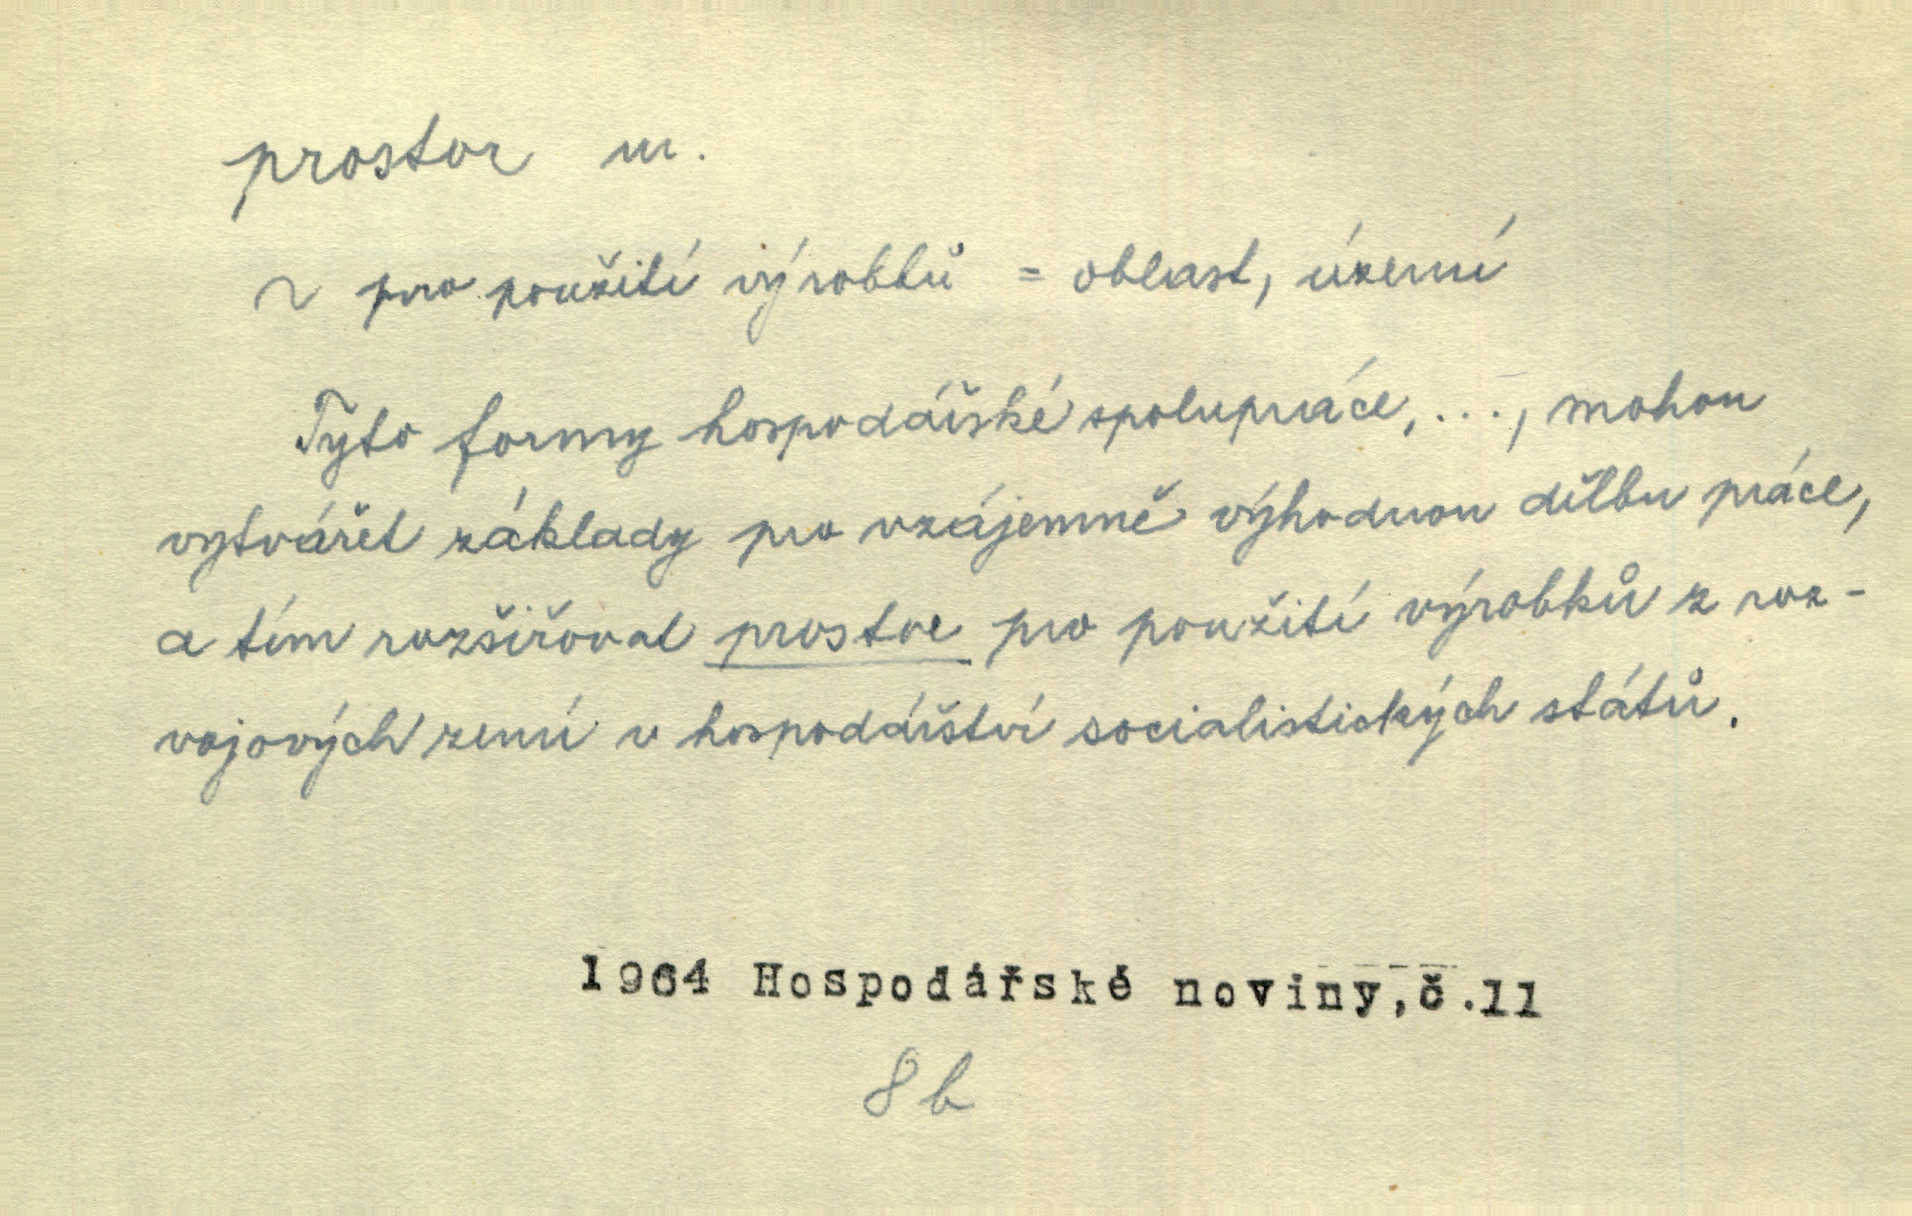 prostor m.
~ pro použití výrobků = oblast, území
Tyto formy hospodářské spolupráce, ..., mohou
vytvářet základy pro vzájemně výhodnou dělbu práce,
a tím rozšiřovat prostor pro použití výrobků z roz-
vojových zemí v hospodářství socialistických států.
1964 Hospodářské noviny,č.11
8b